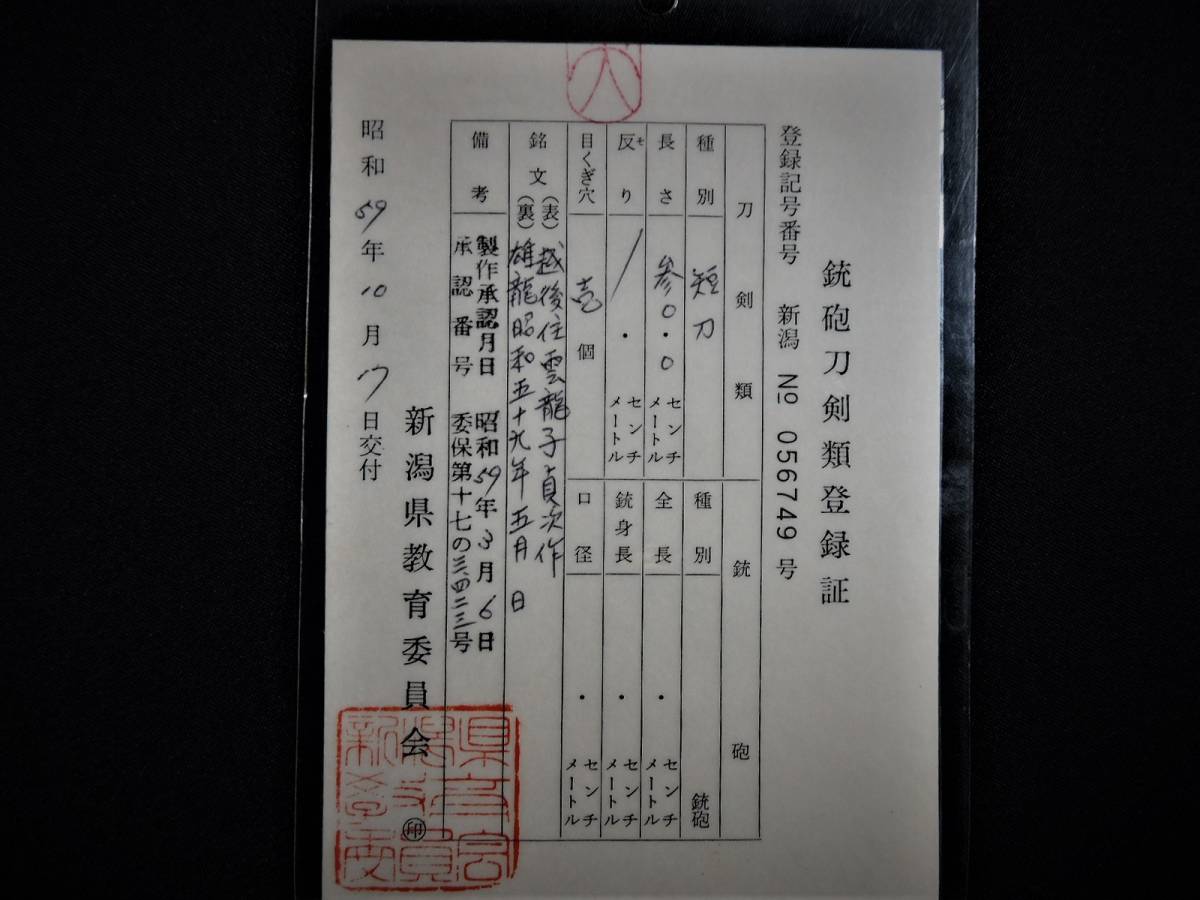 銃砲刀剣類登録証
登録記号番号 新潟 № 056749 号
刀剣類 銃砲
種別 短刀 種別 銃砲
長さ 参〇・〇 センチメートル 全長 ・ センチメートル
反り モ / ・ センチメートル 銃身長 ・ センチメートル
目くぎ穴 壱 個 口径 ・ センチメートル
銘文 (表) 越後住雲龍子貞次作
(裏) 雄龍昭和五十九年五月 日
備考 製作承認月日 昭和59年3月6日
承認番号 委保第十七の三、四二三号
新潟県教育委員会 ㊞
昭和59年10月17日交付
新潟県教育委員会